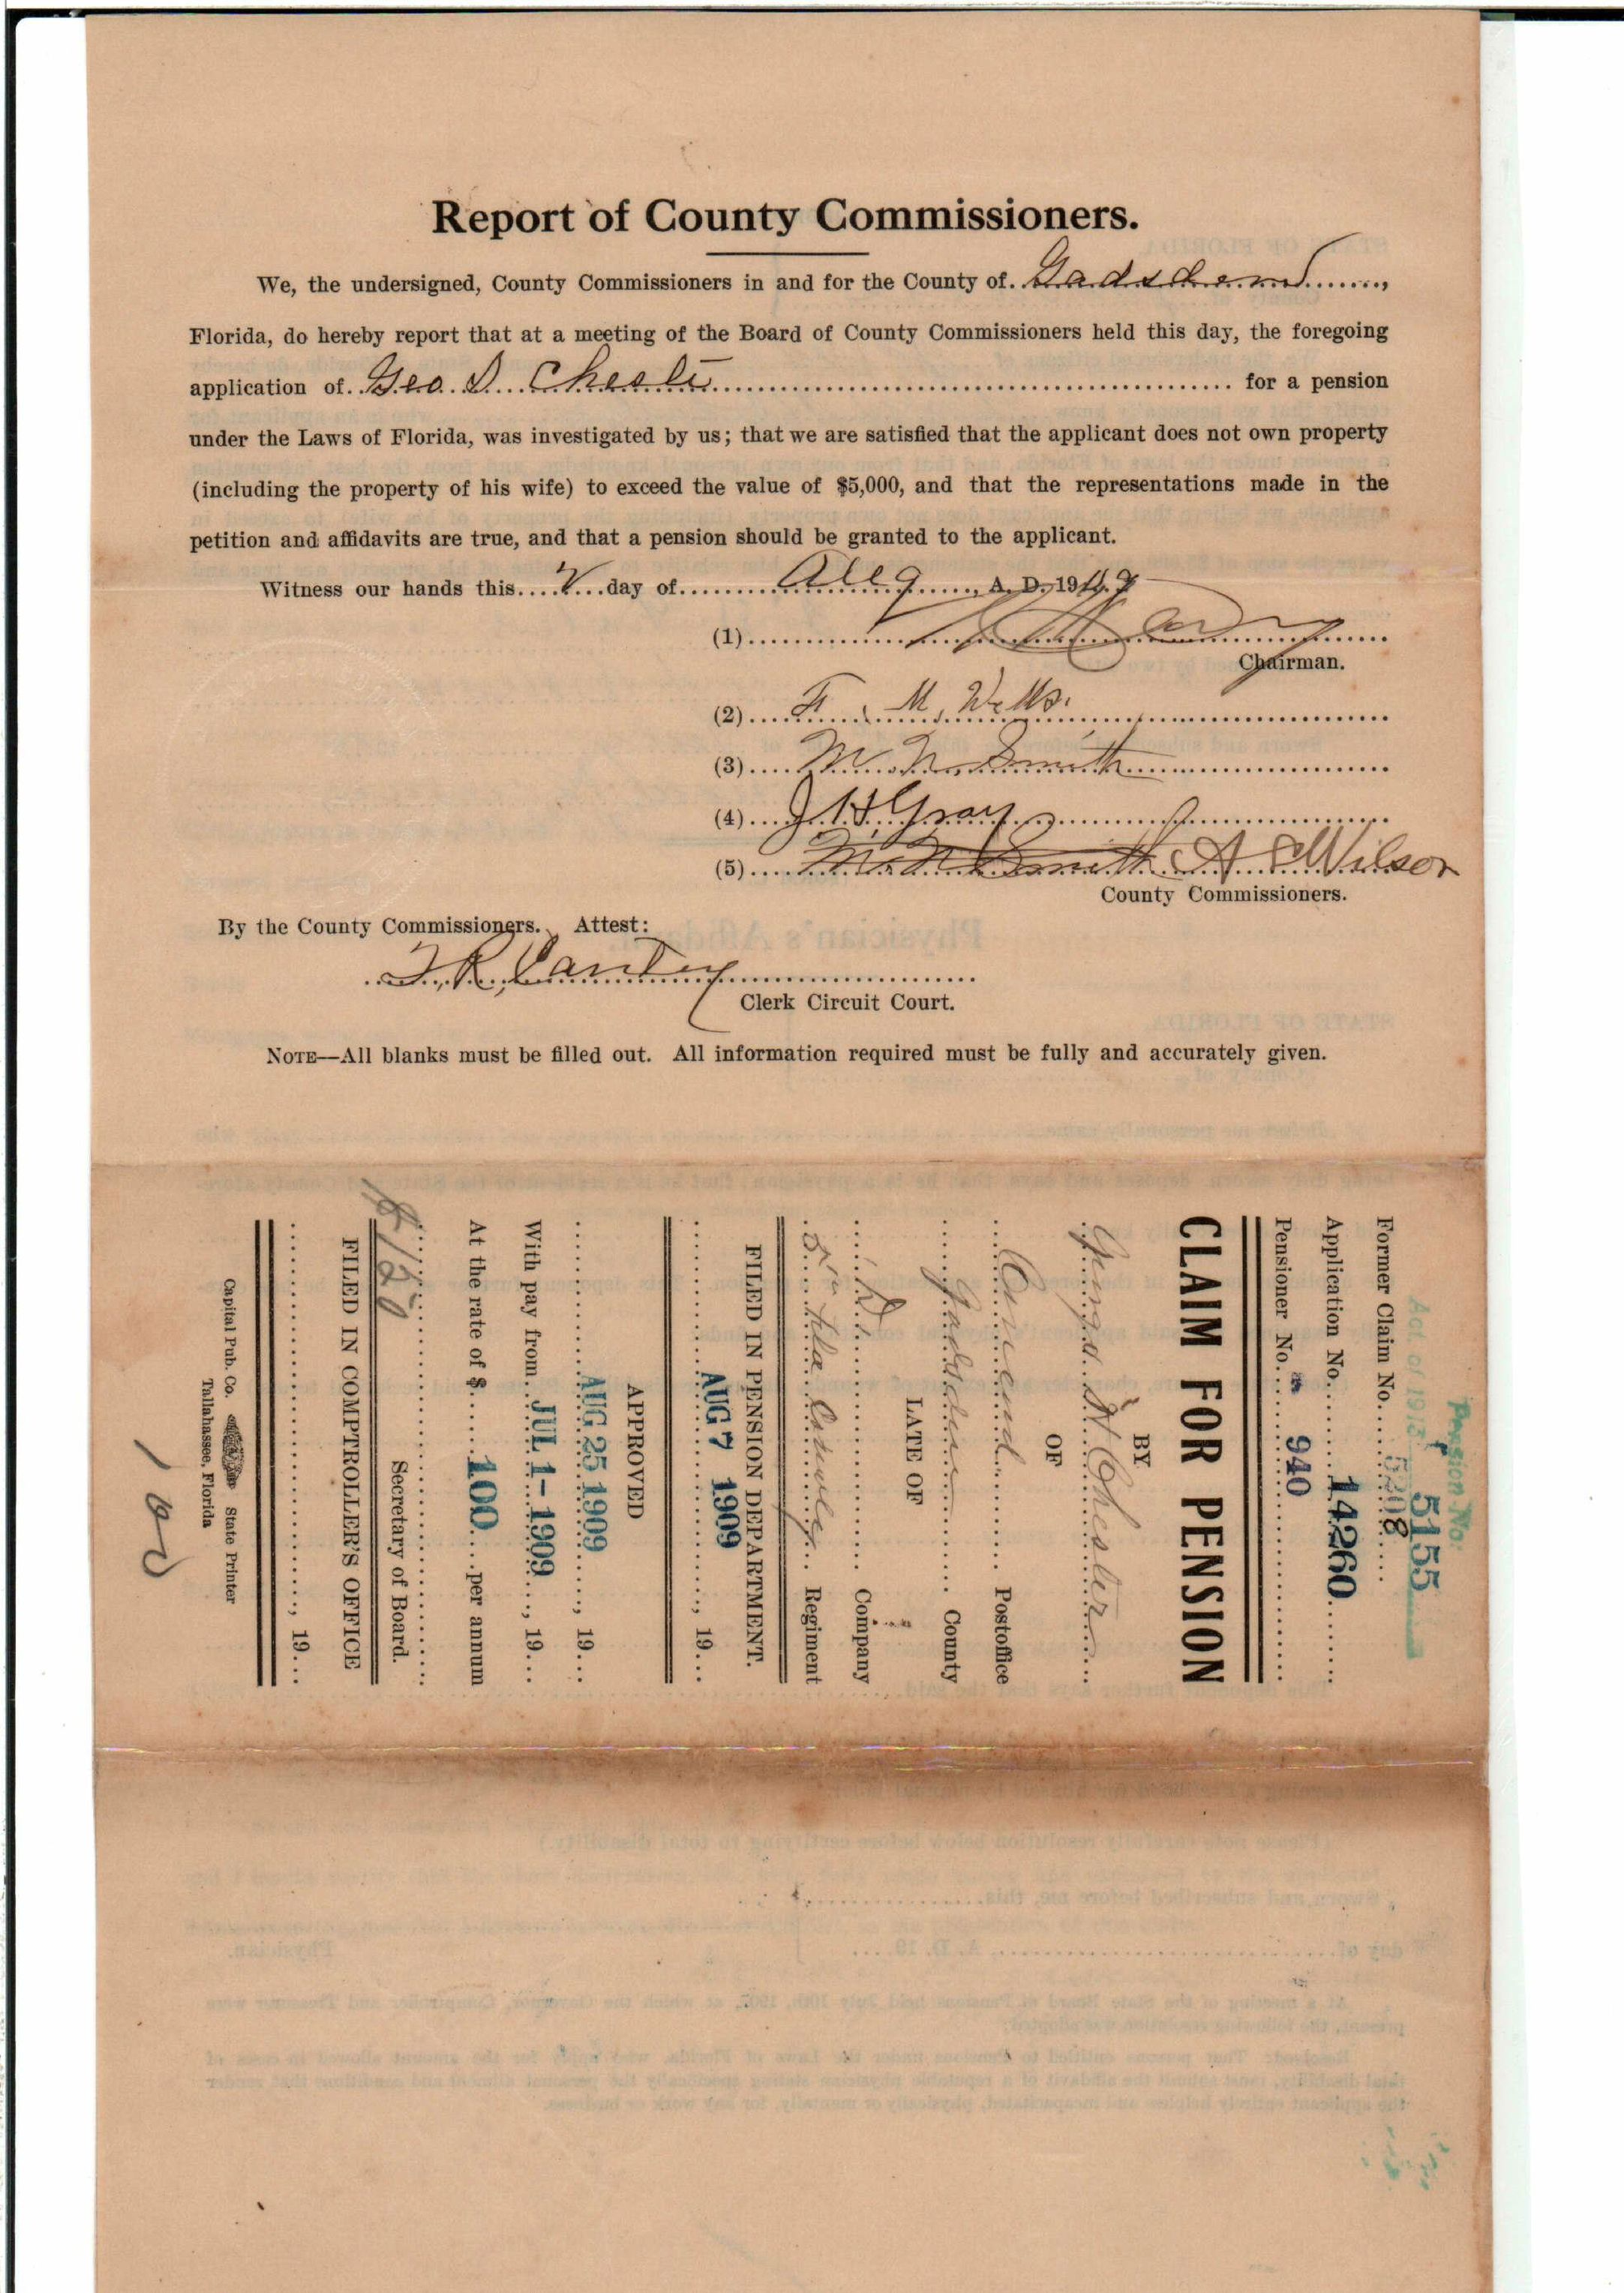 Report of County Commissioners.
We, the undersigned, County Commissioners in and for the County of. Gadsden.......,
Florida, do hereby report that at a meeting of the Board of County Commissioners held this day, the foregoing
application of. Geo. D. Chester.......... for a pension
under the Laws of Florida, was investigated by us; that we are satisfied that the applicant does not own property
(including the property of his wife) to exceed the value of $5,000, and that the representations made in the
petition and affidavits are true, and that a pension should be granted to the applicant.
Witness our hands this.... ...day of......... Aug ......, A. D. 19
(1)..........
Chairman.
(2).... F. M. Wells.
(3).... M. N. Smith
(4).... J. H. Gray
(5).... M. N. Smith A S Wilson
County Commissioners.
By the County Commissioners. Attest:
Clerk Circuit Court.
NOTE—All blanks must be filled out. All information required must be fully and accurately given.
Pension No.
Act. of 1913
5155
Former Claim No.... 5308
Application No. 14260
Pensioner No. 940
CLAIM FOR PENSION
BY
Chester
OF
Concord Postoffice
Gadsden County
LATE OF
D. Company
5th Fla Cavalry Regiment
FILED IN PENSION DEPARTMENT.
AUG 7 1909 , 19...
APPROVED
AUG 25 1909 , 19...
With pay from.. JUL 1- 1909 , 19...
At the rate of $ 100 per annum
$120
Secretary of Board.
FILED IN COMPTROLLER'S OFFICE
, 19...
Capital Pub. Co. State Printer
Tallahassee, Florida